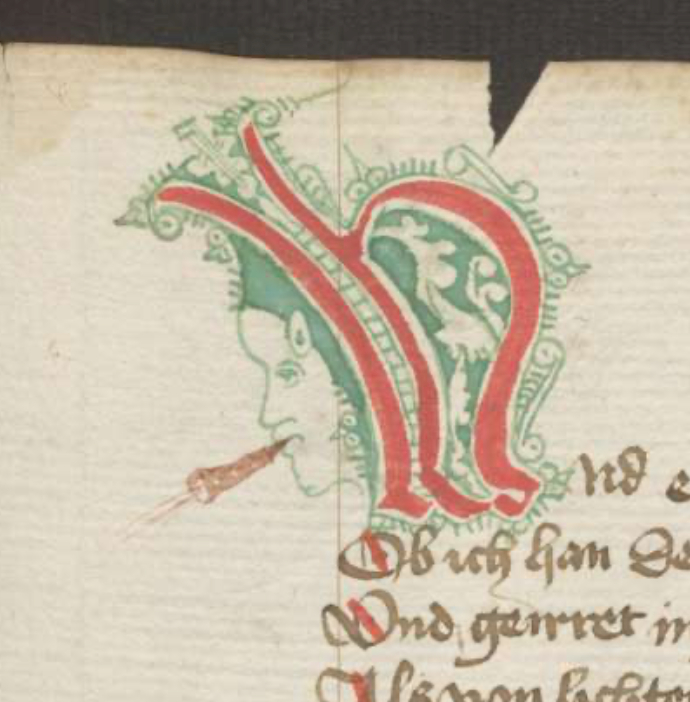 Vnd e
Ob ich han de
Vnd geirret in
Als von lichter